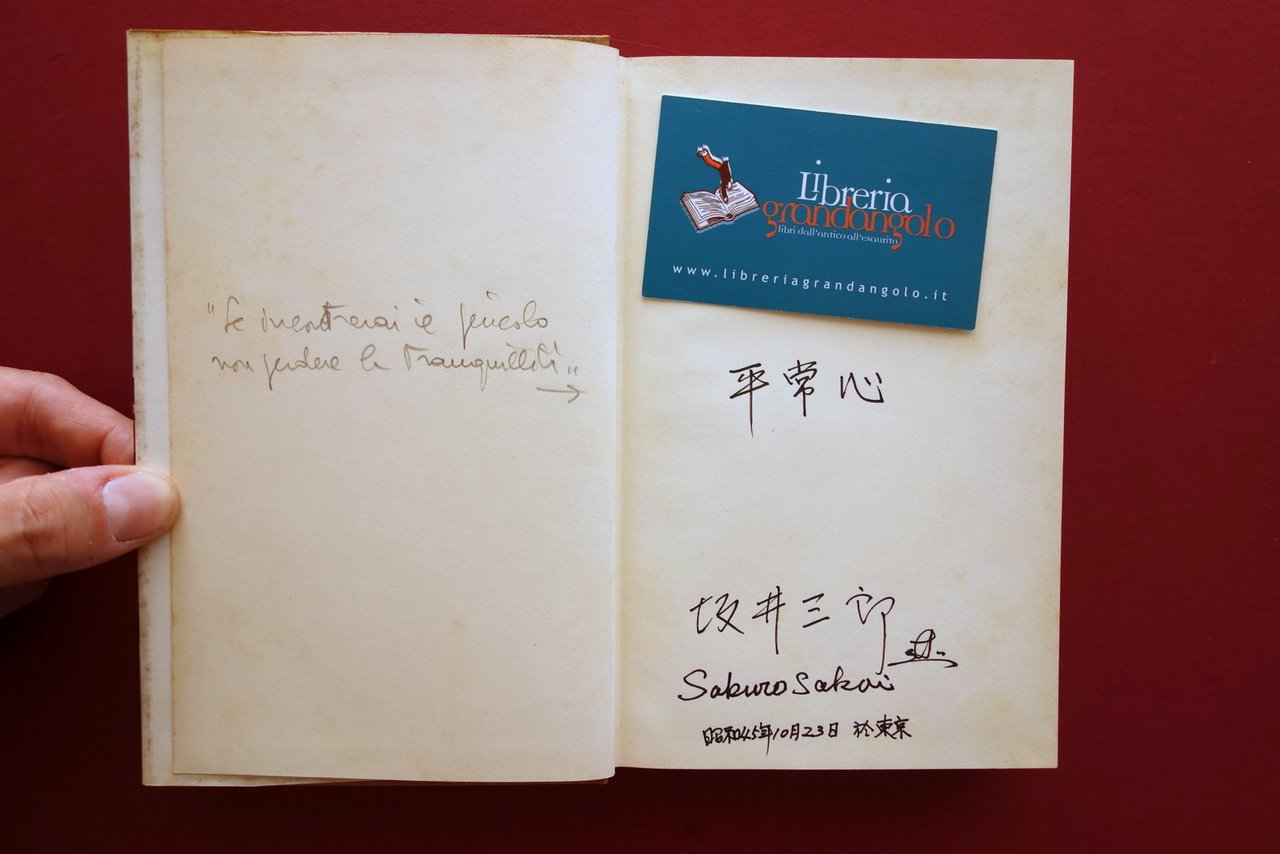 "Se incontrerai il pericolo
non perdere la tranquillità"
Libreria
grandangolo
libri dall'antico all'esaurito
www.libreriagrandangolo.it
平常心
坂井三郎
Saburo Sakai
昭和45年10月23日 於東京